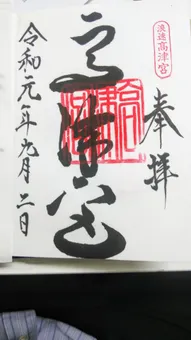 浪速高津宮
奉拝
高津宮
令和元年九月二日